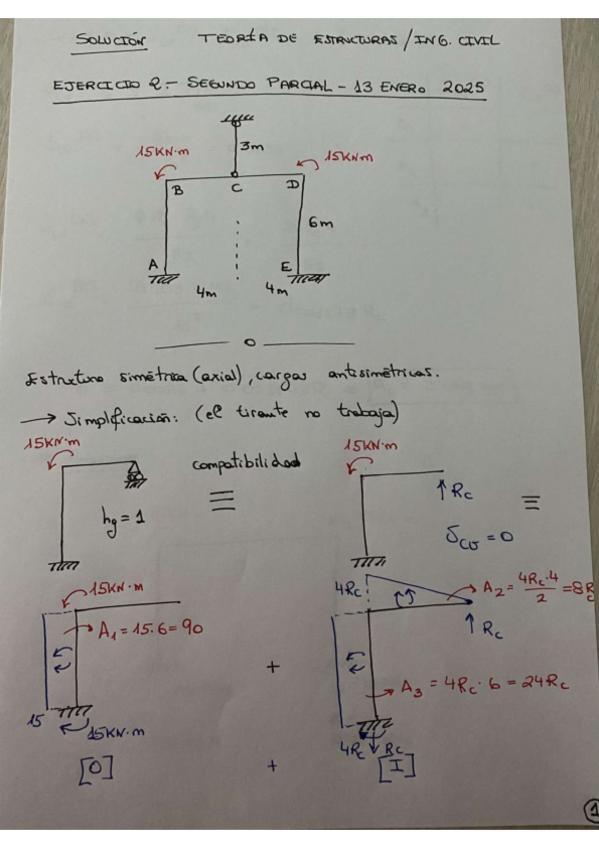 SOLUCIÓN TEORÍA DE ESTRUCTURAS / ING. CIVIL
EJERCICIO 2.- SEGUNDO PARCIAL - 13 ENERO 2025
3m
15KN·m 15KNm
B C D
6m
A E
4m 4m
O
Estructura simétrica (axial), cargas antisimétricas.
→ Simplificación: (el tirante no trabaja)
15KN·m compatibilidad 15KN·m
hg = 1 ≡ ↑ Rc ≡
δcv = 0
15KN·m 4Rc A2 = 4Rc·4/2 = 8Rc
A1 = 15·6 = 90 ↑ Rc
+ A3 = 4Rc · 6 = 24Rc
15 15KN·m 4Rc Rc
[0] + [I]
1